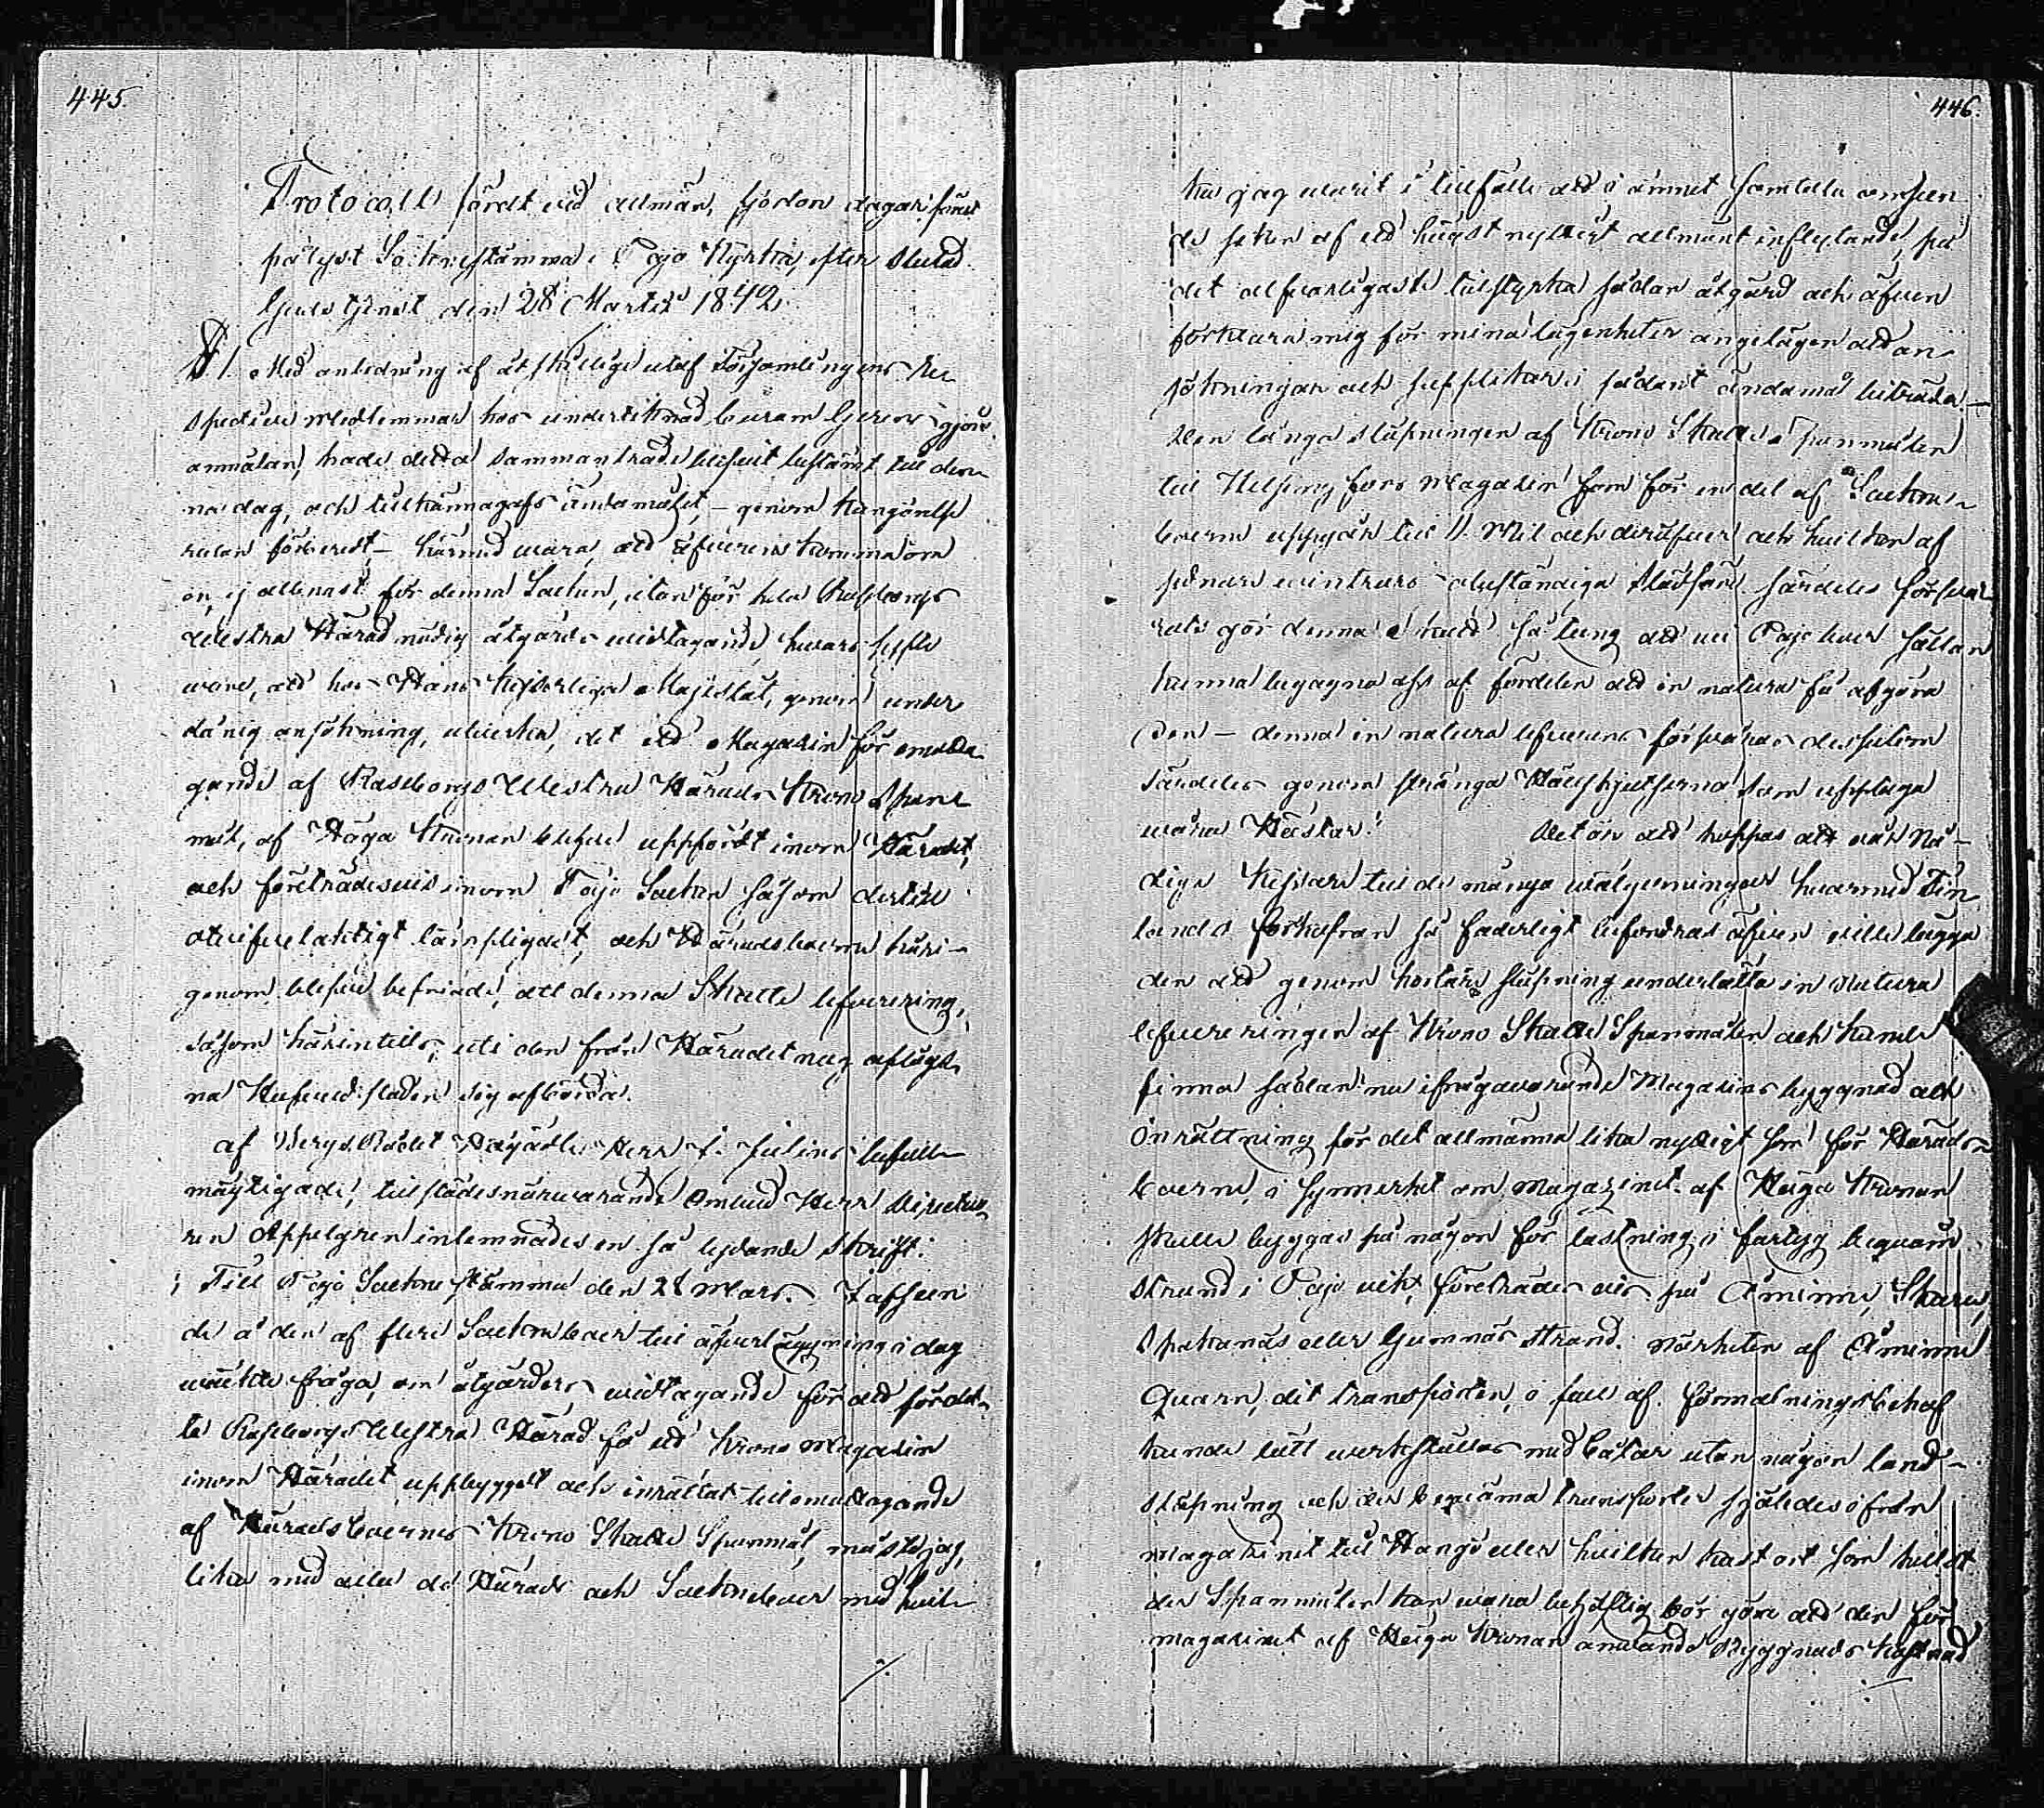 445
Protocoll fördt vid allmän, fjorton dagar förut
pålyst Sockne stämma i Pojo Kyrka, efter slutad
Gudstjenst den 28 Martii 1842
§ 1. Med anledning af åtskillige utaf Församlingens Re-
spective Medlemmar hos undertecknad, Curam Gerens gjord
anmälan, hade detta sammanträde blifvit bestämt till den-
na dag, och tillkännagafs ändamålet, – genom kungörelse
redan förberedt, – härmed vara, att öfverenskomma om
en, ej allenast för denna Socken, utan för hela Raseborgs
Westra Härad nödig åtgärds vidtagande, hvars syfte
vore, att hos Hans Kejserliga Majestät, genom under
dånig ansökning, utverka, det ett Magazin för emotta-
gande af Raseborgs Westra Härads Krono Spann
mål, af Höga Kronan blefve uppfördt inom Häradet,
och företrädesvis inom Pojo Socken såsom dertill
otvifvelaktigt lämpligast, och Häradsboerne häri-
genom blefve befriade, att denna Skatte lefverering,
såsom härintills, uti den från Häradet nog aflägs-
na Hufvudstaden sig afbörda.
af BergsRådet Högädle Herr J. Julins befull-
mäytigade, tillstädesnärvarande Ombud Herr Directeu-
ren Appelgren inlemnades en så lydande skrift:
Till Pojo Sockne stämma den 28 Mars. I afseen
de å den af flere Sockneboer till öfverläggning i dag
väckta fråga, om åtgärders vidtagande för att för det-
ta Raseborgs Westra Härad få ett Krono Magasin
inom Häradet uppbyggdt och inrättat till emottagande
af Häradsboernes Krono Skatte Spanmål, måste jag,
lika med alla de Härads och Sockneboer med hvil-
446.
ka jag varit i tillfälle att i ämnet samtala anseen
de saken af ett högst nyttigt allmänt inflytande, på
det alfvarligaste tillstyrka sådan åtgärd och äfven
förklara mig för mina lägenheter angelägen att an-
sökningar och suppliker i sådant ändamål biträda. –
Den långa släpningen af Krono Skatte Spanmålen
till Helsingfors Magazin som för en del af Sockne-
boerne uppgår till 11 Mil och derutöfver och hvilken af
sednare vintrars obeständiga slädföre särdeles försvå-
rats gör denna Skatt så tung att vi Pojo boer sällan
kunna begagna oss af fördelen att in natura få afgöra
den – denna in natura lefverering försvåras dessutom
särdeles genom stränga Hållskjutserna som upptaga
våra Hästar. Det är att hoppas att vår Nå-
dige Kejsare till de många välgerningar hvarmed Fin
lands förkofran så faderligt befordras äfven ville lägga
den att genom kortare släpning underlätta in Natura
lefvereringen af Krono Skatte Spanmålen och kunde
finna sådan nu ifrågavarande Magazins byggnad och
inrättning för det allmänna lika nyttigt som för Härads-
boerne, i synnerhet om Magazinet af Höga Kronan
skulle byggas på någon för lastning i fartyg beqväm
strand i Pojo vik, företrädesvis på Åminne, Skuru,
Spakanäs eller Gumnäs strand. Närheten af Åminne
Quarn, dit transporten, i fall af förmalningsbehof
kunde lätt verkställas med båtar utan någon land-
släpning och den beqväma transporten sjöledes ifrån
Magazinet till Hangö eller hvilken kust ort som helst
der Spanmålen kan vara behöflig bör göra att den för
magazinet af Höga Kronan använde Byggnads kostnad